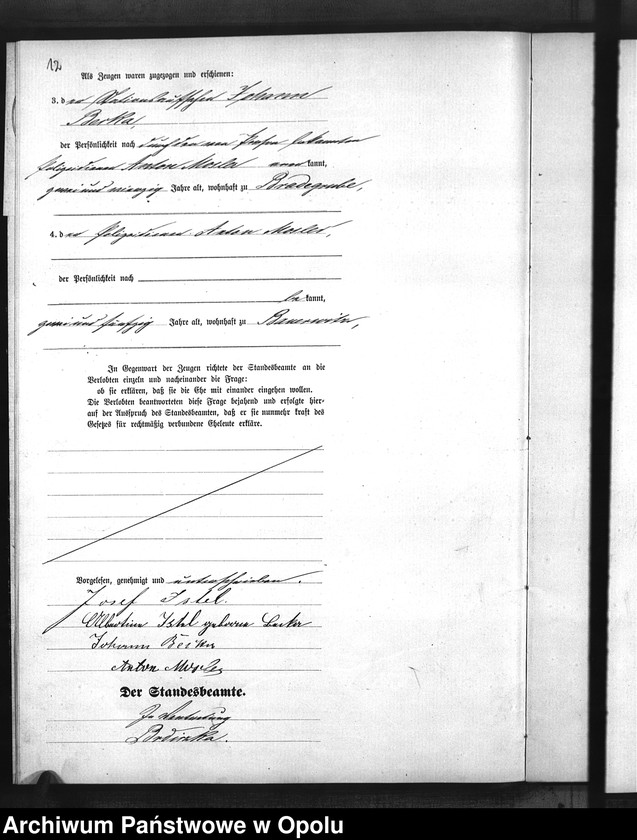 12
Als Zeugen waren zugezogen und erschienen:
3. der Stationsaufseher Johann
Berka,
der Persönlichkeit nach durch den von Person bekannten
Polizeidiener Anton Mosler anerkannt,
zweiundzwanzig Jahre alt, wohnhaft zu Bradegrube,
4. der Polizeidiener Anton Mosler,
der Persönlichkeit nach
bekannt,
zweiundfünfzig Jahre alt, wohnhaft zu Bauerwitz,
In Gegenwart der Zeugen richtete der Standesbeamte an die
Verlobten einzeln und nacheinander die Frage:
ob sie erklären, daß sie die Ehe mit einander eingehen wollen.
Die Verlobten beantworteten diese Frage bejahend und erfolgte hier-
auf der Ausspruch des Standesbeamten, daß er sie nunmehr kraft des
Gesetzes für rechtmäßig verbundene Eheleute erkläre.
Vorgelesen, genehmigt und unterschrieben.
Josef Istel.
Albertine Istel geborene Berka
Johann Berka
Anton Mosler
Der Standesbeamte.
In Vertretung
Archiwum Państwowe w Opolu